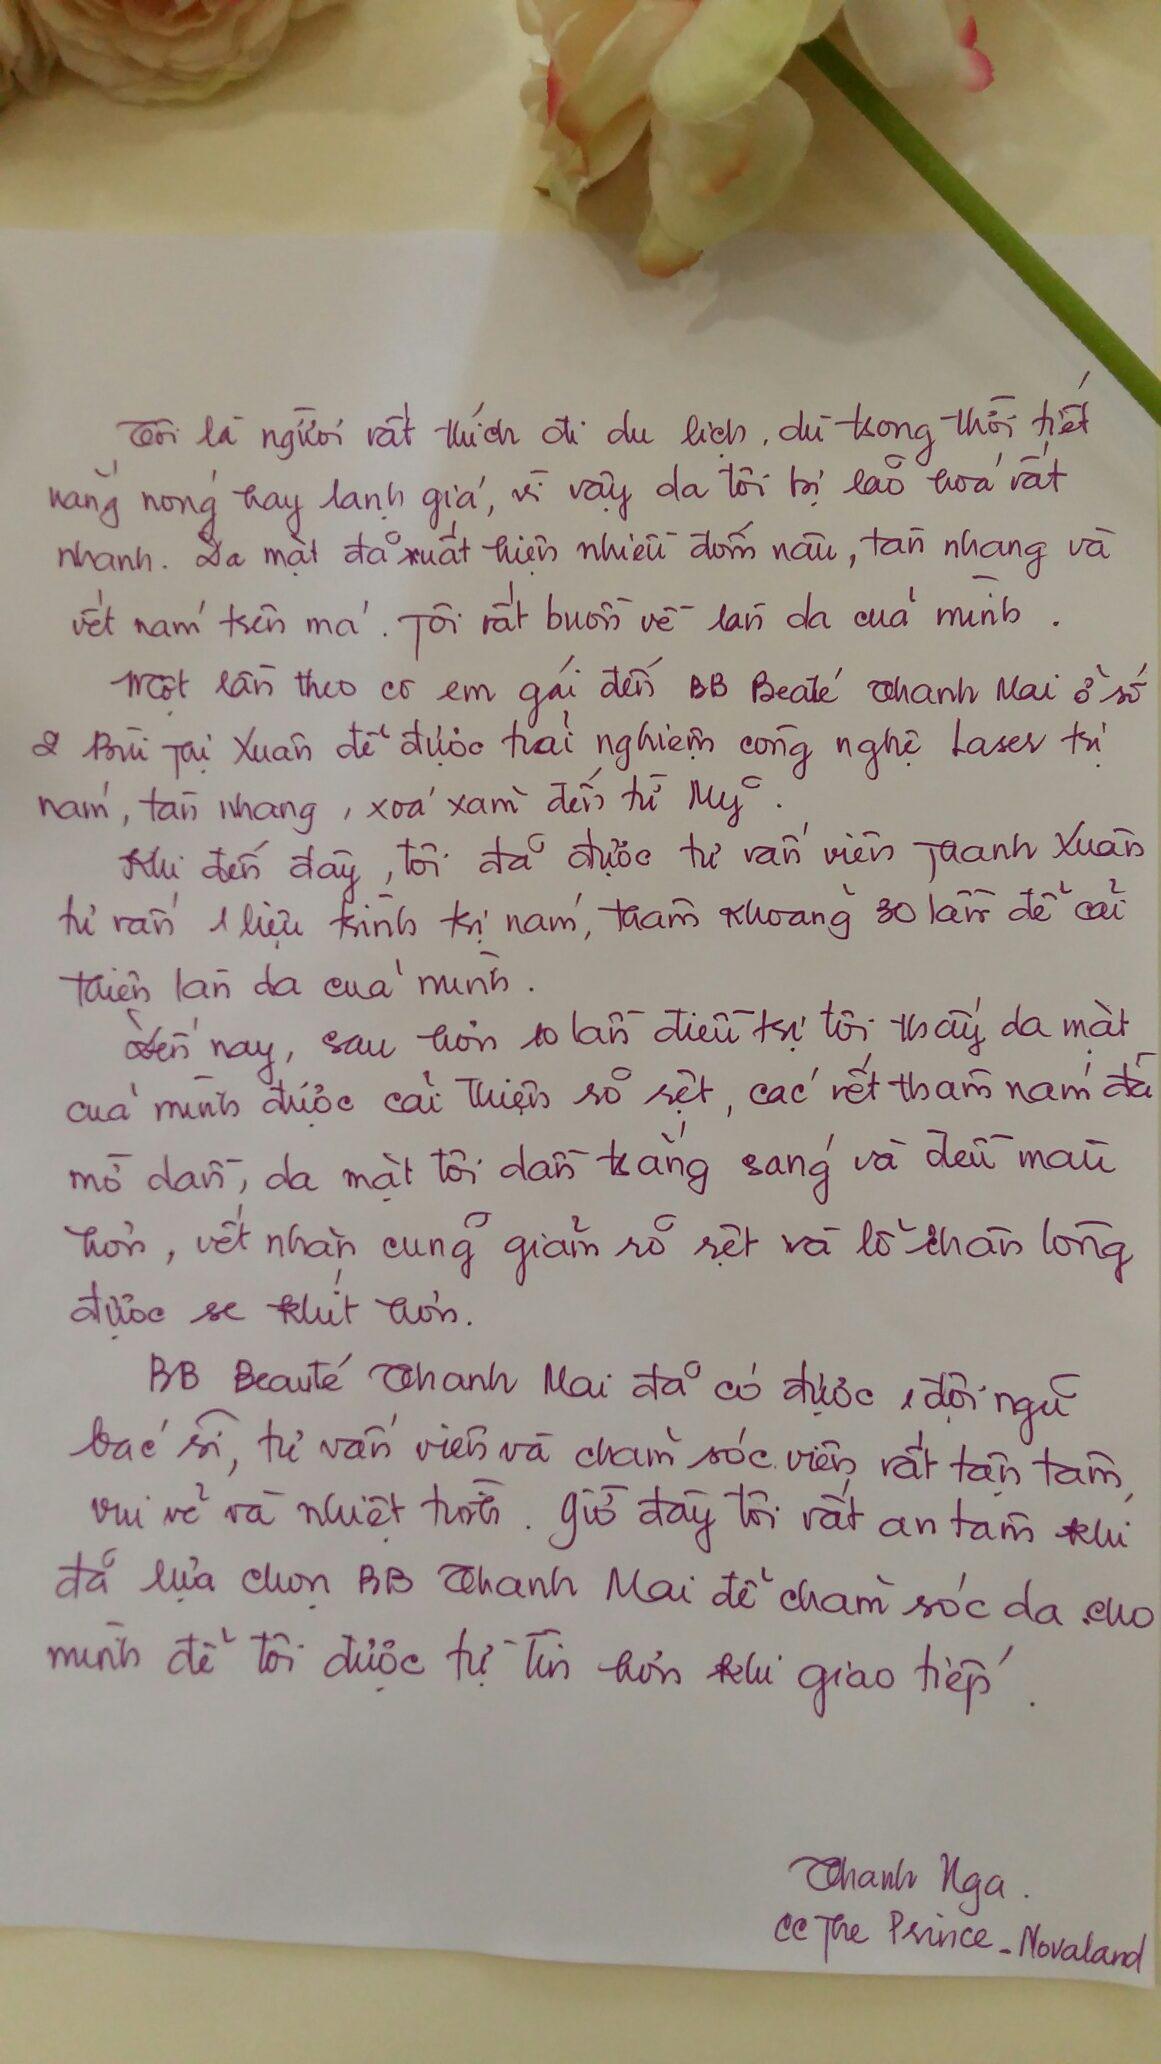 Tôi là người rất thích đi du lịch, dù trong thời tiết
nắng nóng hay lạnh giá, vì vậy da tôi bị lão hoá rất
nhanh. Da mặt đã xuất hiện nhiều đốm nâu, tàn nhang và
vết nám trên má. Tôi rất buồn về làn da của mình.
Một lần theo cô em gái đến BB Beaté Thanh Mai ở số
2 Bùi Thị Xuân để được trải nghiệm công nghệ Laser trị
nám, tàn nhang, xoá xăm đến từ Mỹ.
Khi đến đây, tôi đã được tư vấn viên Thanh Xuân
tư vấn 1 liệu trình trị nám, thâm khoảng 30 lần để cải
thiện làn da của mình.
Đến nay, sau hơn 10 lần điều trị tôi thấy da mặt
của mình được cải thiện rõ rệt, các vết thâm nám đã
mờ dần, da mặt tôi dần trắng sáng và đều màu
hơn, vết nhăn cũng giảm rõ rệt và lỗ chân lông
được se khít hơn.
BB Beauté Thanh Mai đã có được 1 đội ngũ
bác sĩ, tư vấn viên và chăm sóc viên rất tận tâm,
vui vẻ và nhiệt tình. Giờ đây tôi rất an tâm khi
đã lựa chọn BB Thanh Mai để chăm sóc da cho
mình để tôi được tự tin hơn khi giao tiếp.
Thanh Nga.
CC The Prince - Novaland